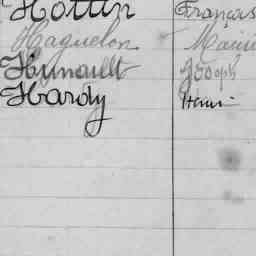 Hottin François
Haguelon Marie
Hunault Joseph
Hardy Henri